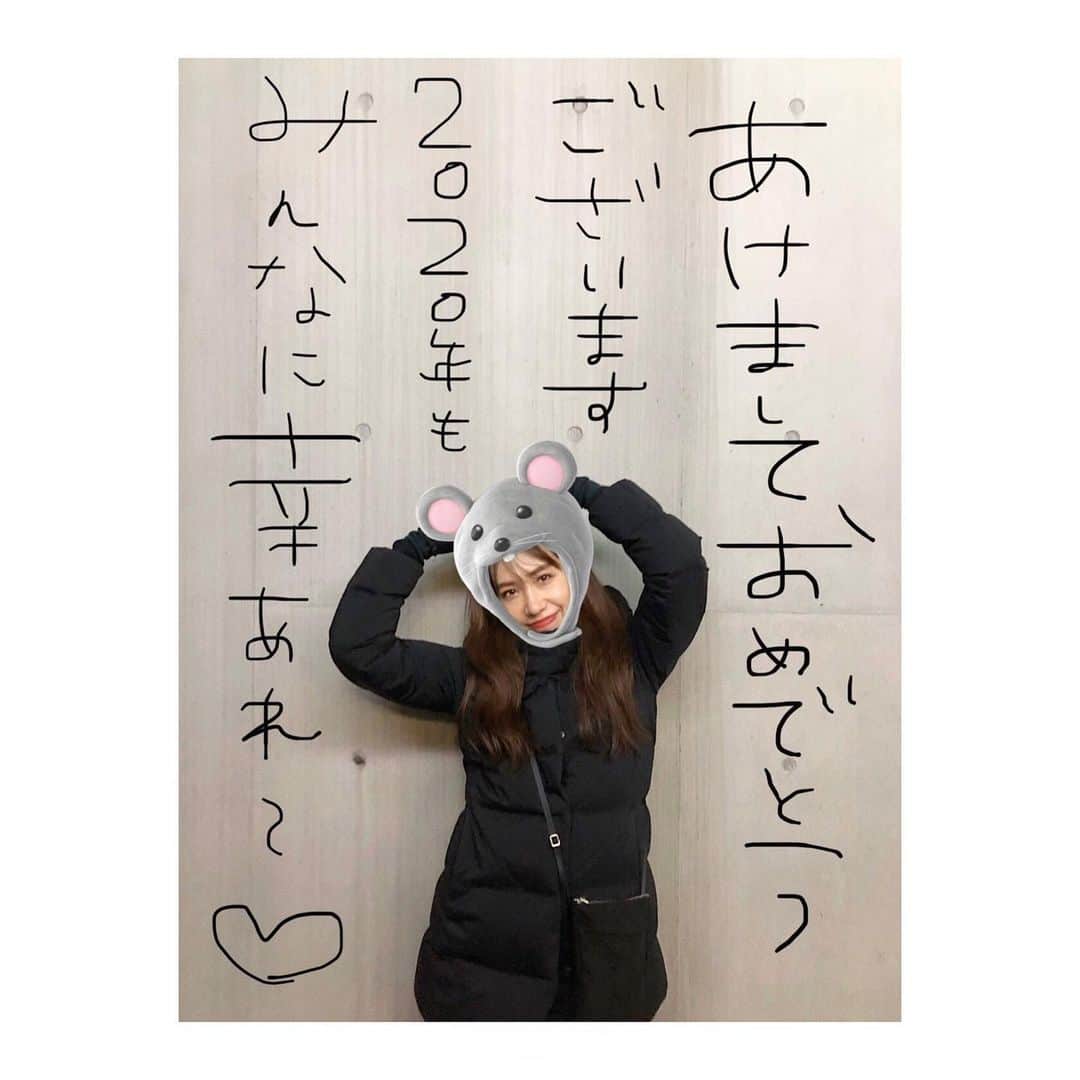 あけましておめでとう
ございます
2020年も
みんなに幸あれ~♡